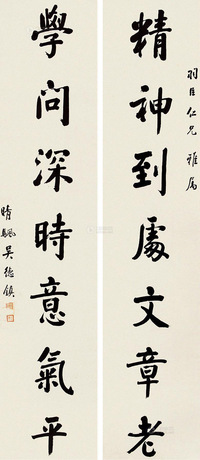 羽臣仁兄雅属
精神到處文章老
學問深時意氣平
晴颿吴德鎮